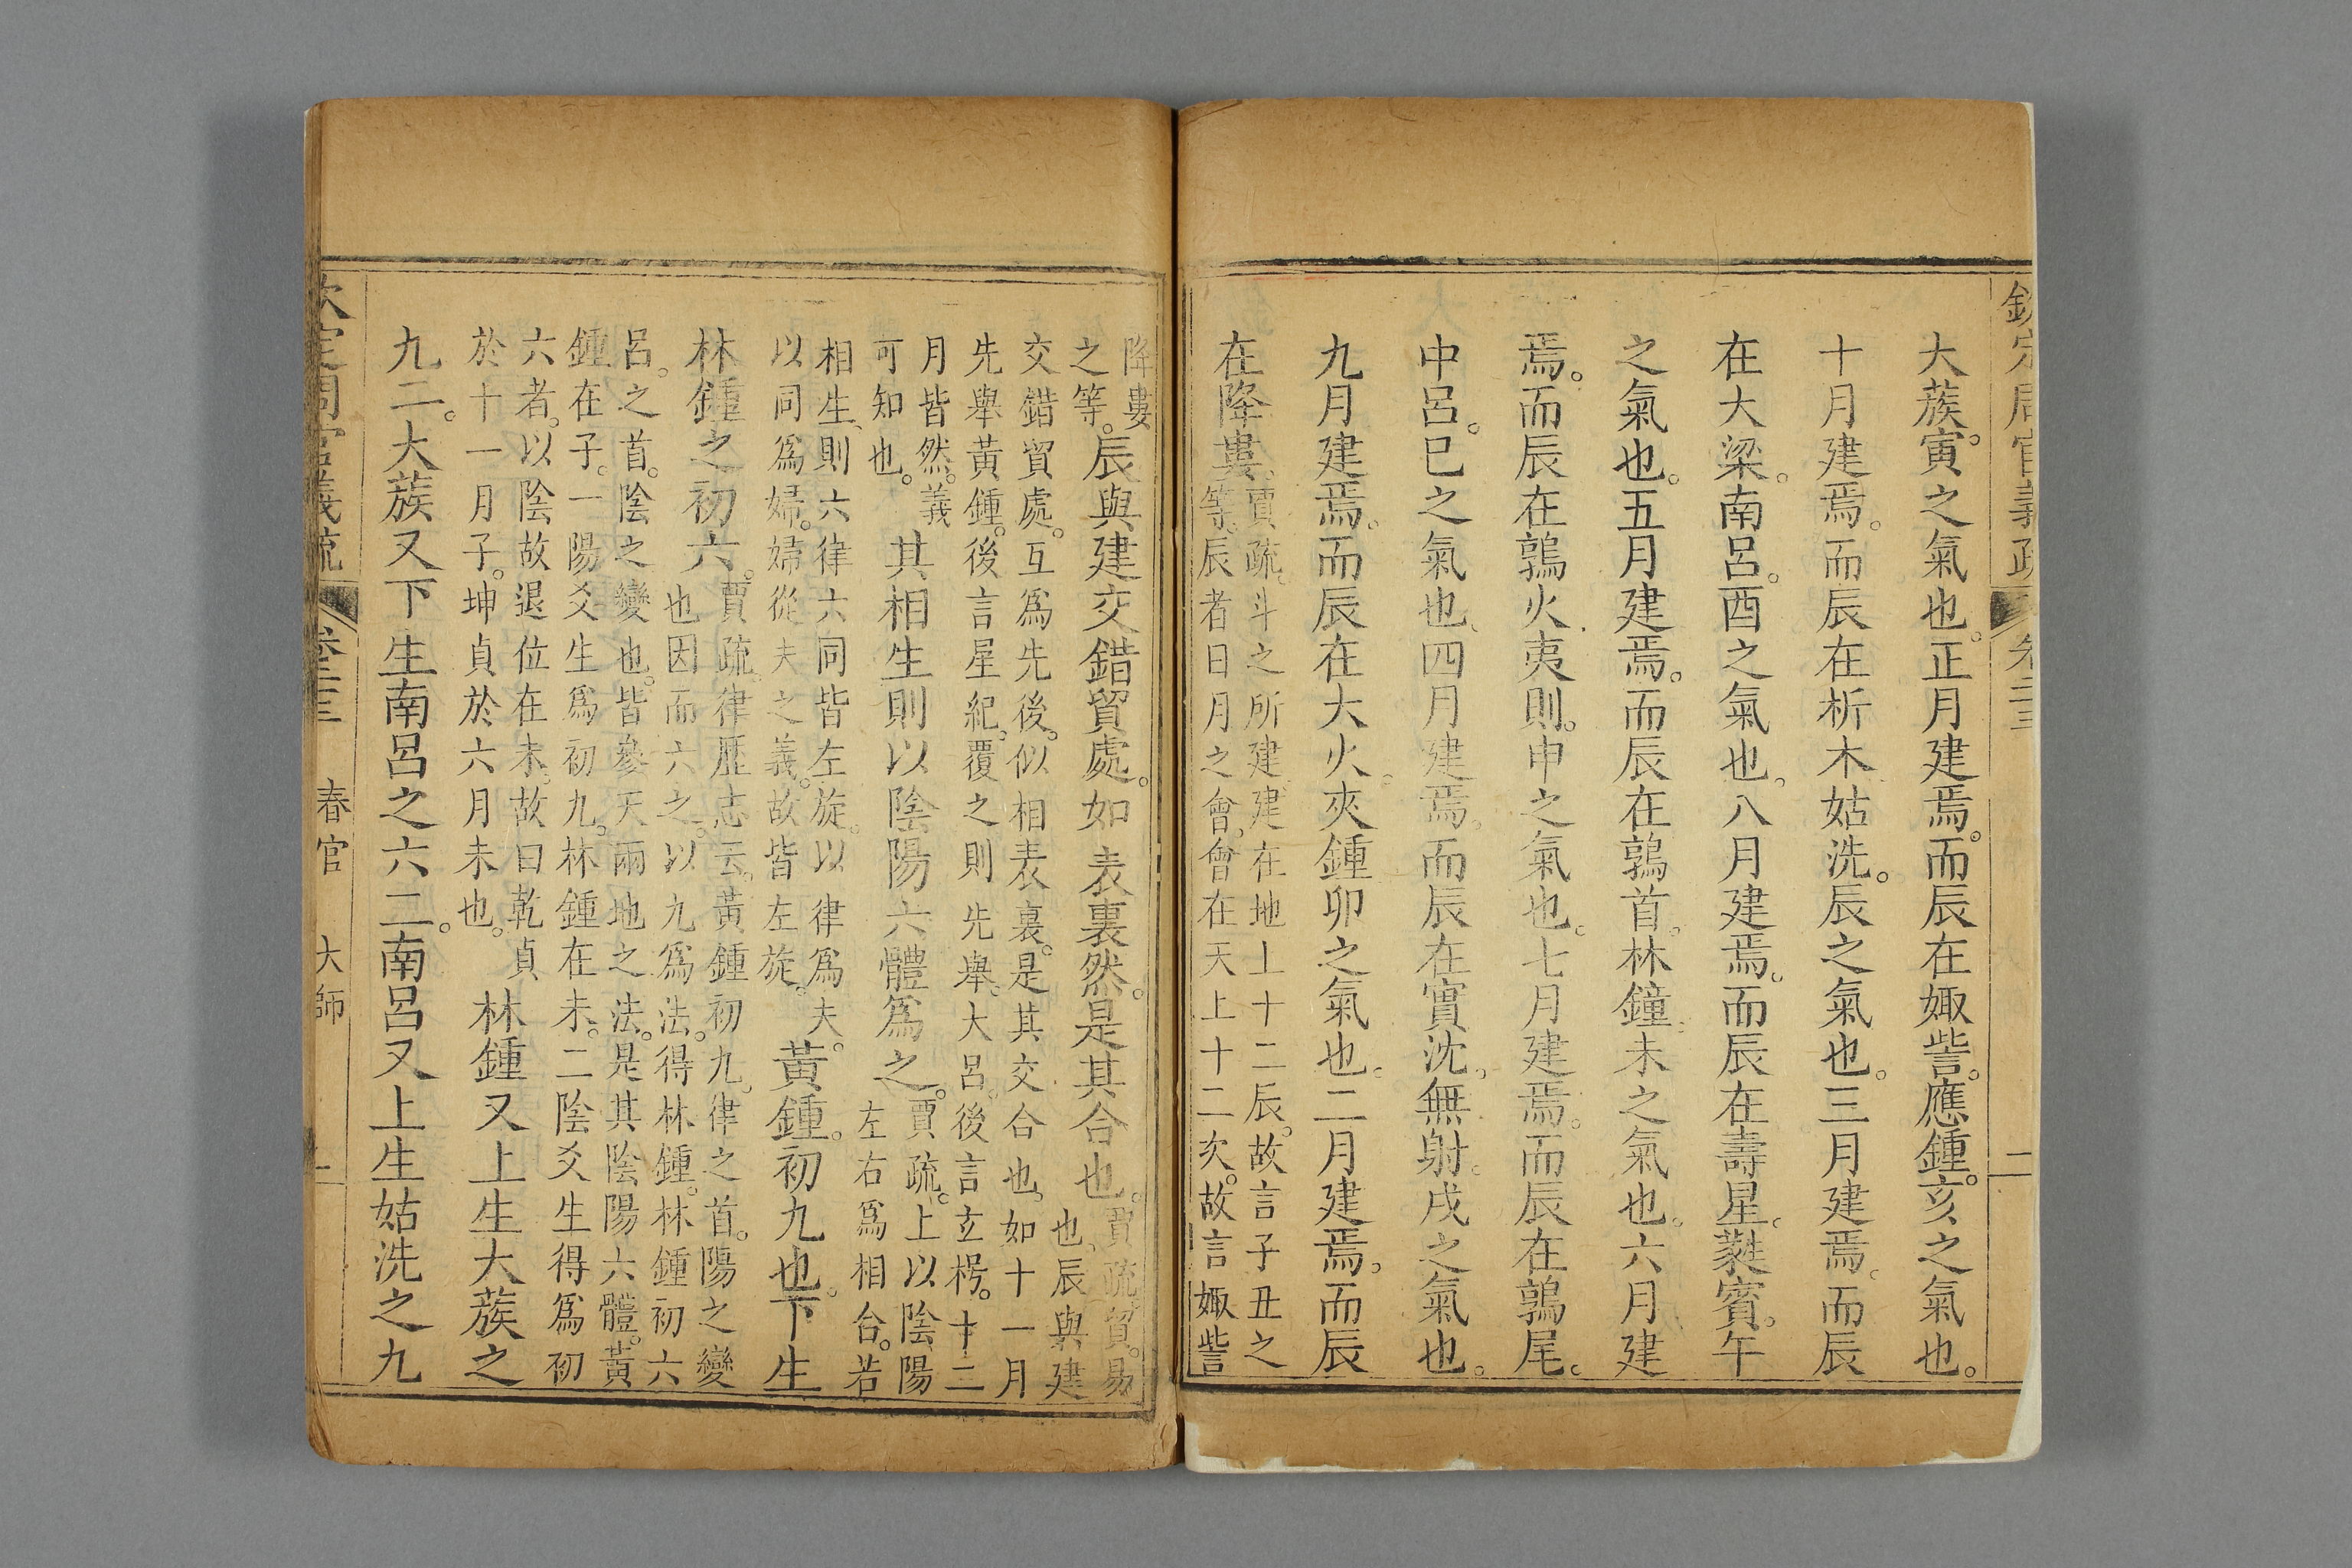 欽定周官義疏 卷二十三 二
大蔟。寅之氣也。正月建焉。而辰在娵訾。應鍾。亥之氣也。
十月建焉。而辰在析木。姑洗。辰之氣也。三月建焉。而辰
在大梁。南呂。酉之氣也。八月建焉。而辰在壽星。蕤賓。午
之氣也。五月建焉。而辰在鶉首。林鐘。未之氣也。六月建
焉。而辰在鶉火。夷則。申之氣也。七月建焉。而辰在鶉尾。
中呂。巳之氣也。四月建焉。而辰在實沈。無射。戌之氣也。
九月建焉。而辰在大火。夾鍾。卯之氣也。二月建焉。而辰
在降婁。
賈疏。斗之所建。建在地上十二辰。故言子丑之
等。辰者日月之會。會在天上十二次。故言娵訾
降婁
之等。
辰與建交錯貿處。如表裏然。是其合也。
賈疏。貿。易
也。辰與建
交錯貿處。互爲先後。似相表裏。是其交合也。如十一月
先舉黃鍾。後言星紀。覆之則先舉大呂。後言玄枵。十二
月皆然。義
可知也。
其相生則以陰陽六體爲之。
賈疏。上以陰陽
左右爲相合。若
相生。則六律六同皆左旋。以律爲夫。
以同爲婦。婦從夫之義。故皆左旋。
黃鍾。初九也。下生
林鍾之初六。
賈疏。律歷志云。黃鍾初九。律之首。陽之變
也。因而六之。以九爲法。得林鍾。林鍾初六
呂。之首。陰之變也。皆參天兩地之法。是其陰陽六體。黃
鍾在子。一陽爻生爲初九。林鍾在未。二陰爻生得爲初
六者。以陰故退位在未。故曰乾貞
於十一月子。坤貞於六月未也。
林鍾又上生大蔟之
九二。大蔟又下生南呂之六二。南呂又上生姑洗之九
欽定周官義疏 卷二十三 春官 大師